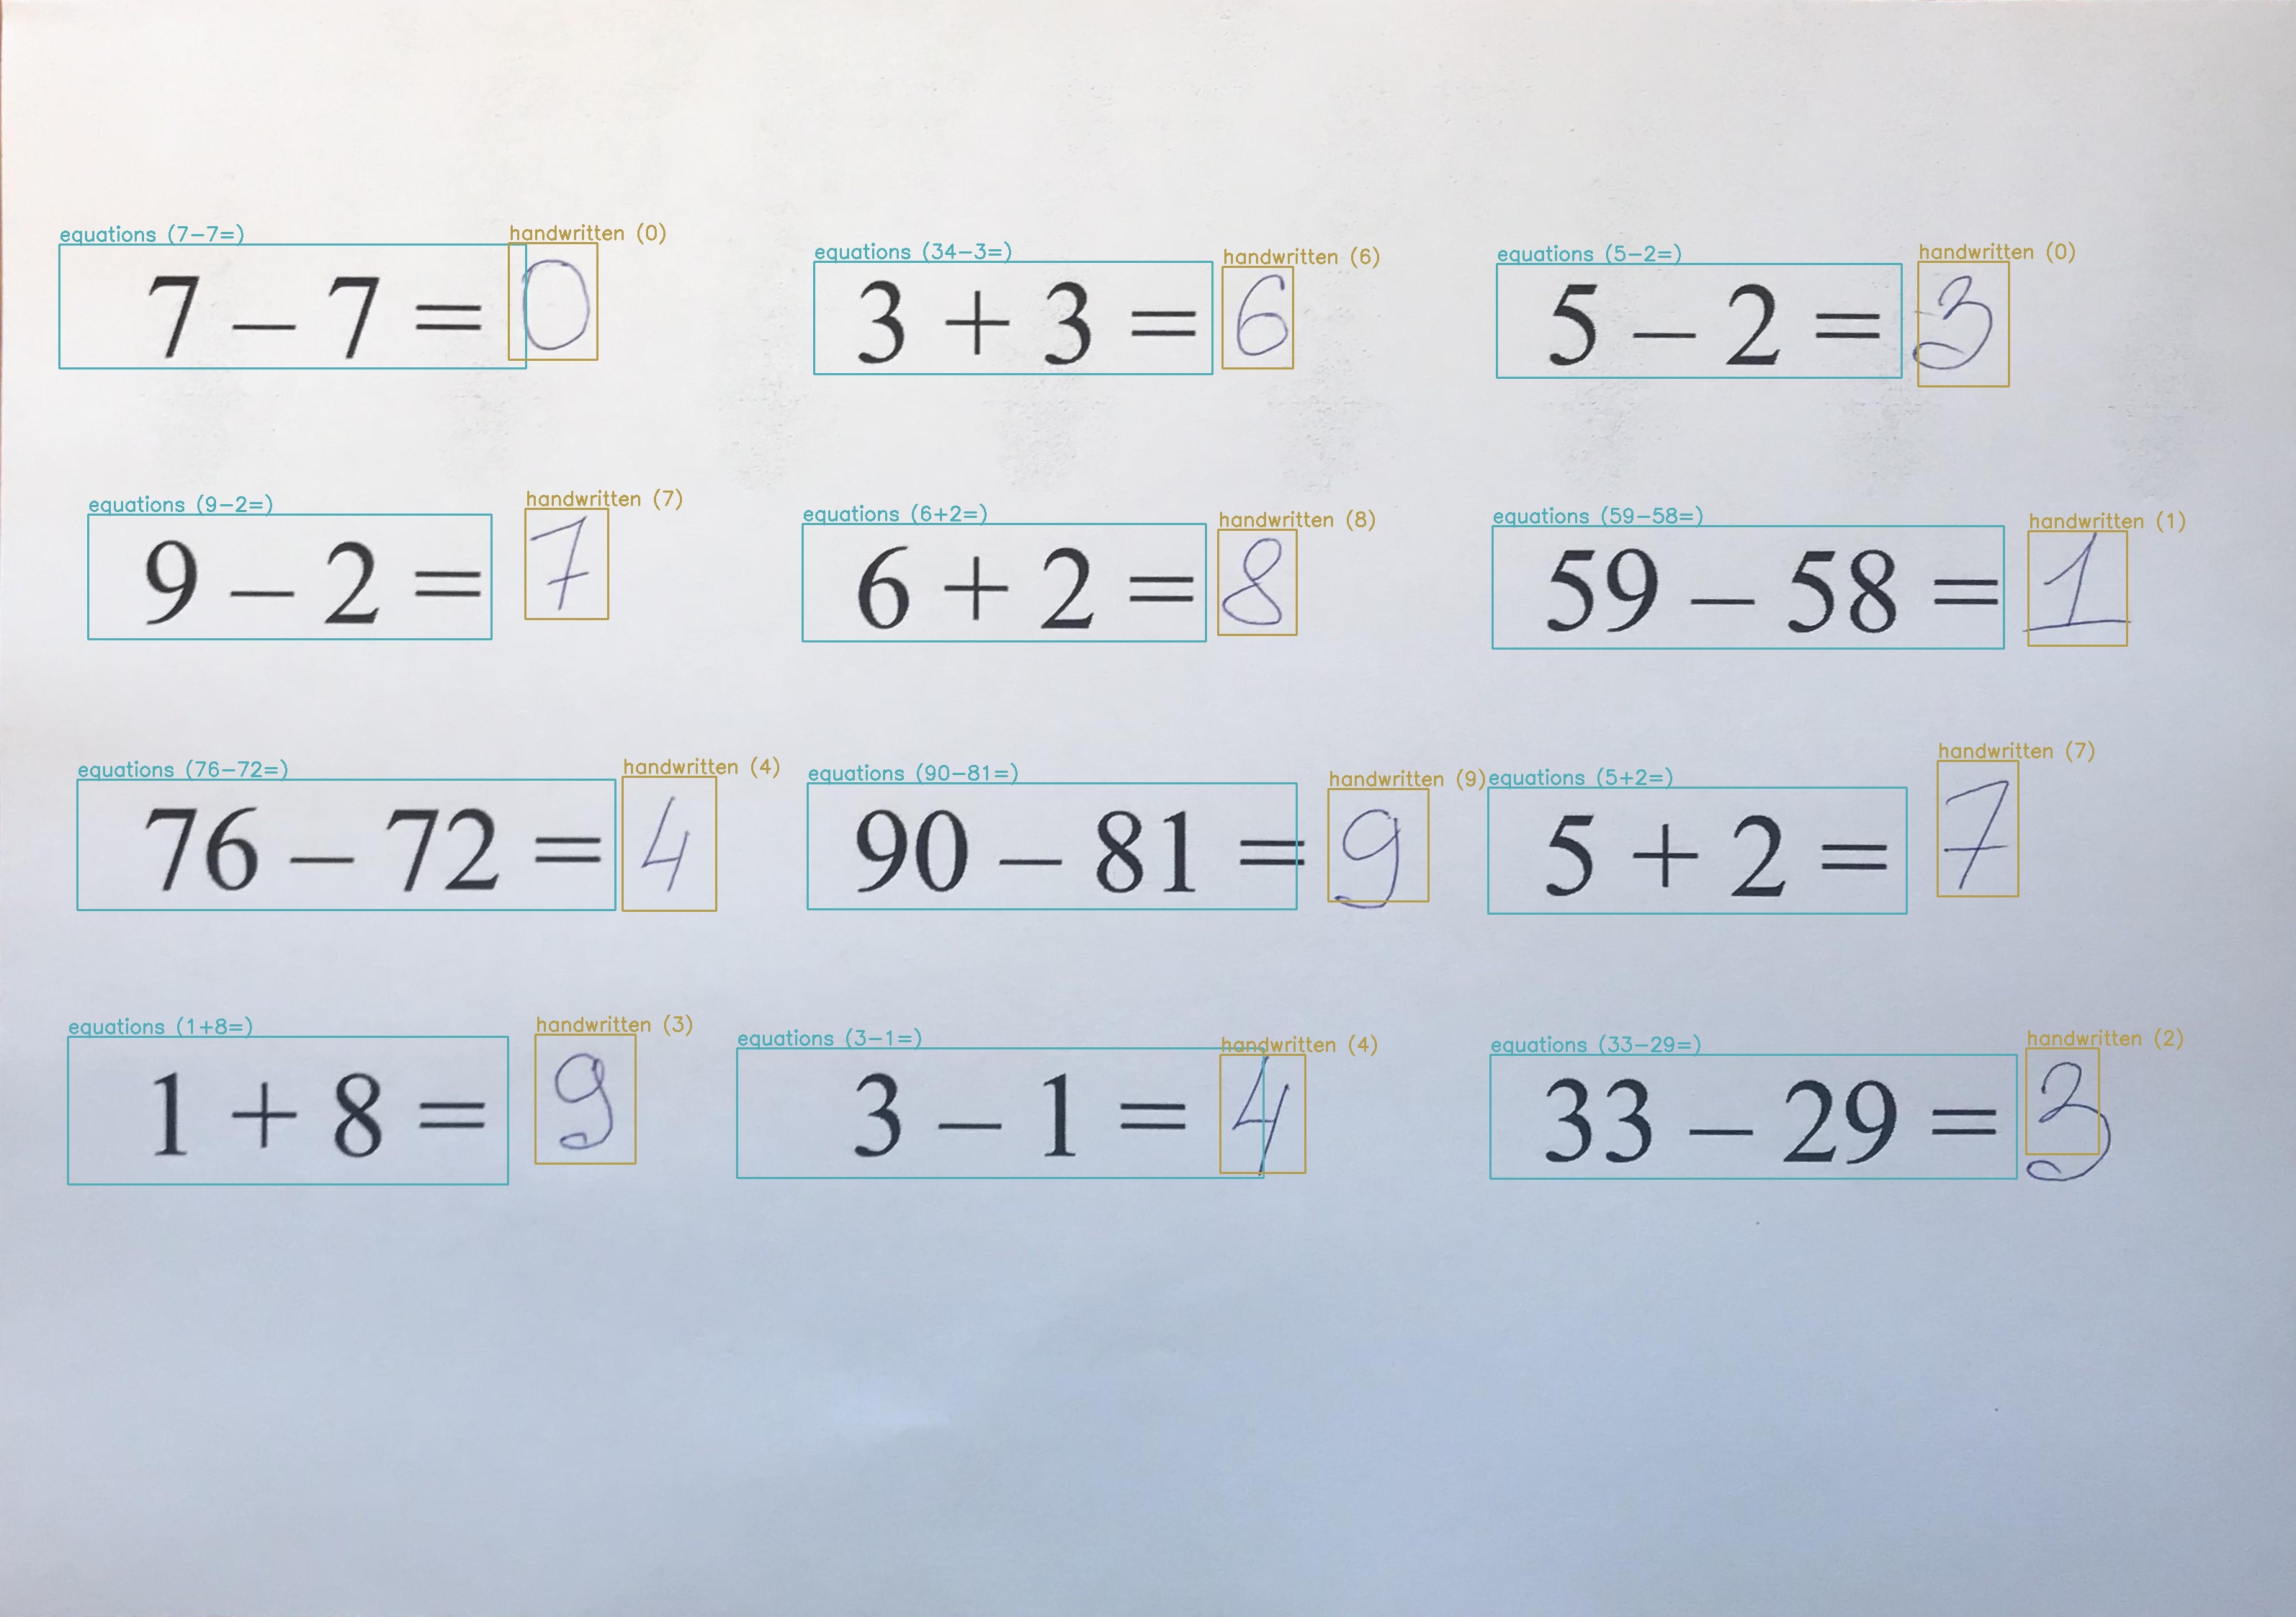 equations (7-7=) handwritten (0) equations (34-3=) handwritten (6) equations (5-2=) handwritten (0)
7 – 7 = 0 3 + 3 = 6 5 – 2 = 3
equations (9-2=) handwritten (7) equations (6+2=) handwritten (8) equations (59-58=) handwritten (1)
9 – 2 = 7 6 + 2 = 8 59 – 58 = 1
equations (76-72=) handwritten (4) equations (90-81=) handwritten (9) equations (5+2=) handwritten (7)
76 – 72 = 4 90 – 81 = 9 5 + 2 = 7
equations (1+8=) handwritten (3) equations (3-1=) handwritten (4) equations (33-29=) handwritten (2)
1 + 8 = 9 3 – 1 = 4 33 – 29 = 3